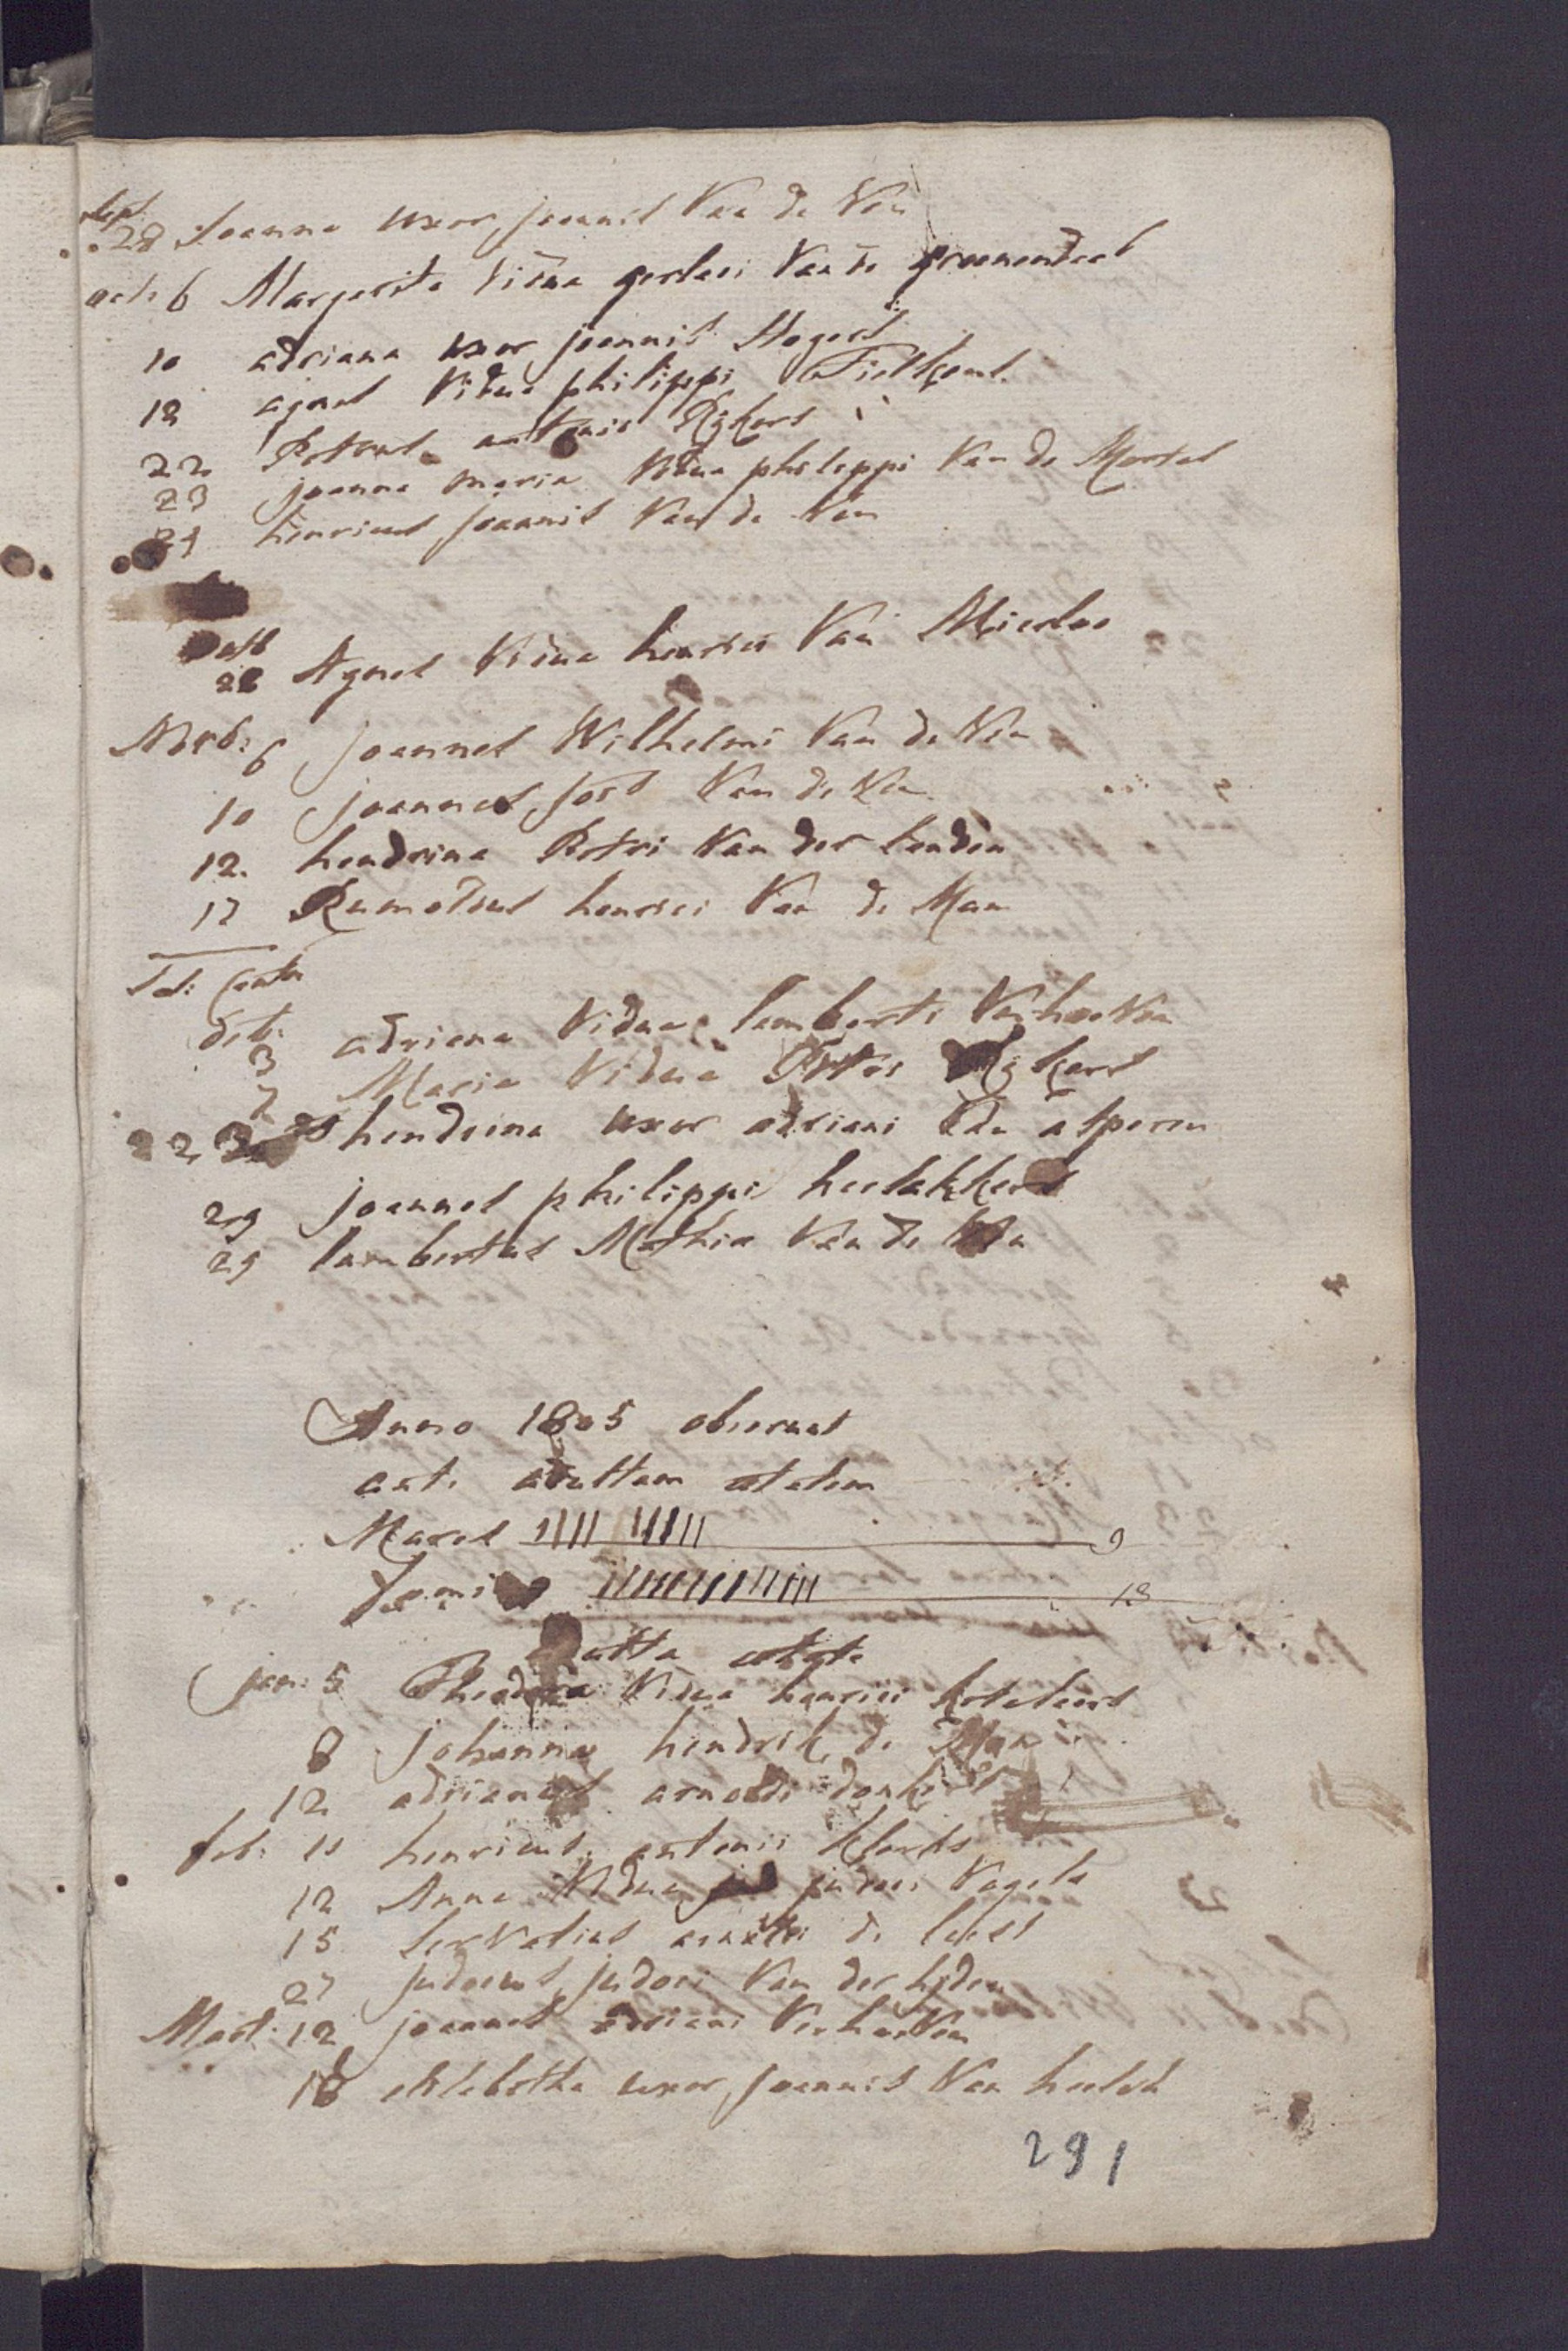 Sept
28 Joanna uxor joannis Van de Ven
octr 6 Margerita vidua gerlaci Van de groenendaal
10 adriana uxor joannis
12 agnes Vidua philippi
22 Petrus antonii Rijkers
23 joanna maria Vidua philippi Van de Mortel
24 henricus joannis Van de Ven
28 Agnes Vidua henrici Van Mierloo
Novb: 6 joannes Wilhelmi Van de Ven
10 joannes Van de Ven
12. hendrina Petri Van der linden
17 Rumoldus henrici Van de Man
deb:
3 adriana Vidua lamberti Verhoeven
7 Maria Vidua Petri Rijkers
22 hendrina uxor adriani Van asperen
29 joannes philippi heelakkers
29 lambertus Mathia Van de Ven
Anno 1805 obierunt
ante adultam etatem
Mares 9
femi 13
adulta etate
jan: 5 Theodora Vidua henrici
8 johanna hendrik de Man
12 adrianus arnoldi donkers
feb: 11 henricus antonii
12 Anna Vidua judoci Vogels
15 Servatius de leest
27 judocus judoci Van der lijden
Mart: 12 joannes adriani Verhoeven
18 elisabetha uxor joannis Van
291